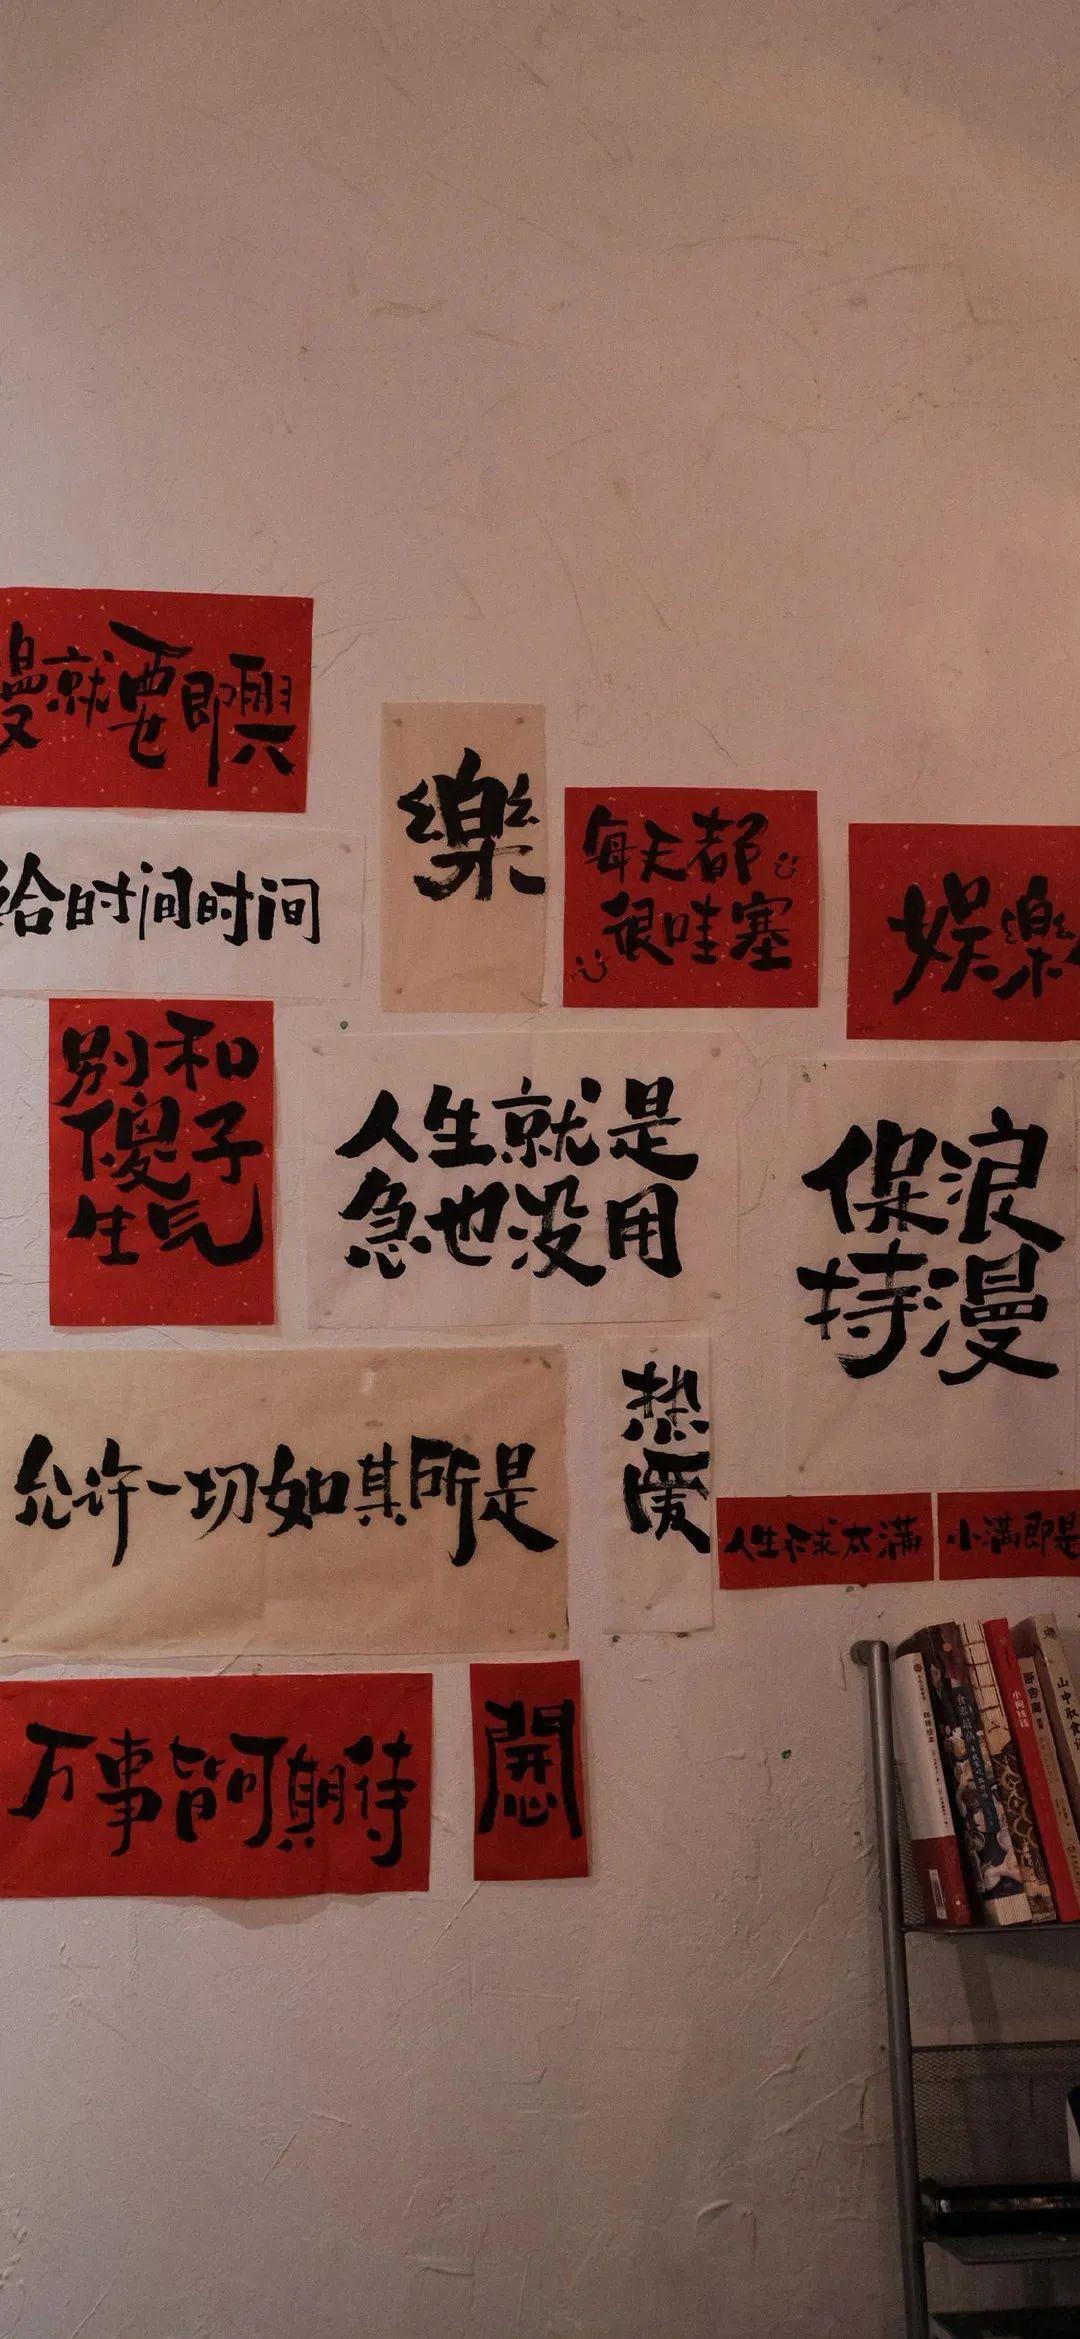 漫就要即興
给时间时间
樂
每天都
很哇塞
娱樂
别和
傻子
生气
人生就是
急也没用
保持
浪漫
允许一切如其所是
热爱
人生不求太满
小满即是
万事皆可期待
開心
小狗钱钱
山中取食记